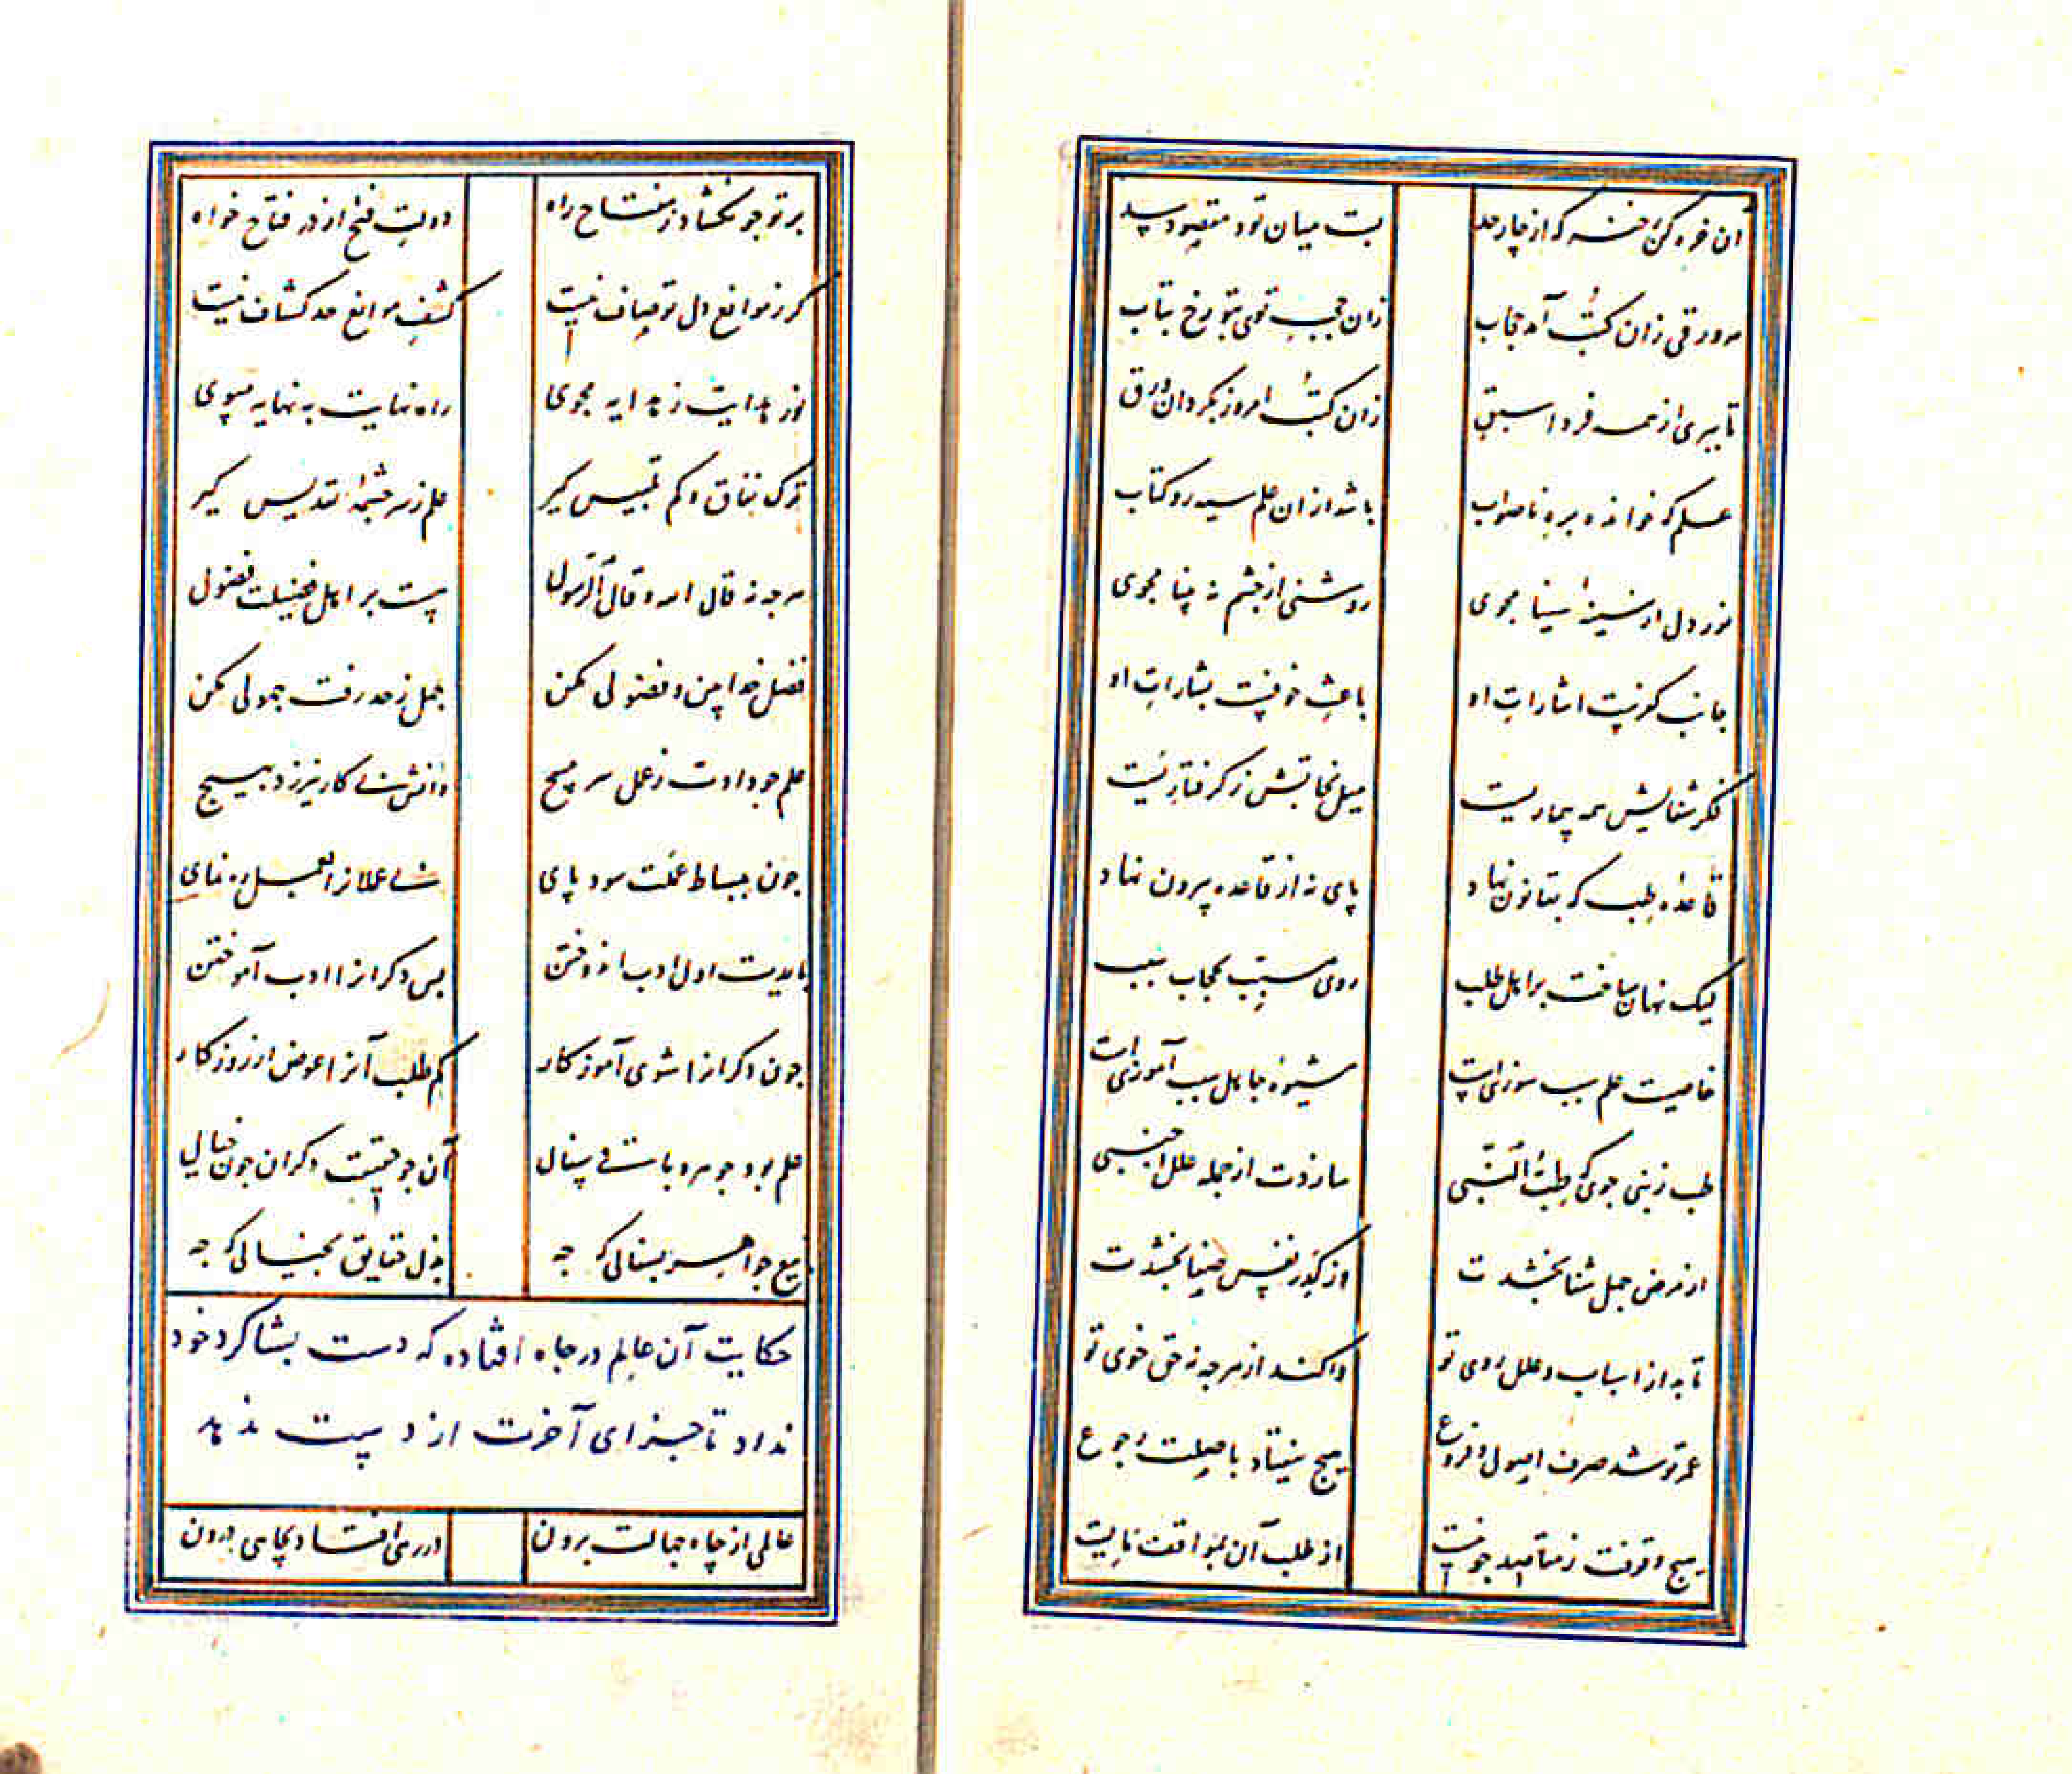 آن خره کن رخنه که از چار حد بست میان تو و مقصود سد
هر ورقی زان کتب آمد حجاب زان حجب توی بتو رخ بتاب
تا ببری از همه فردا سبق زان کتب امروز بکردان ورق
علم که خوانده بره ناصواب باشد ازان علم سیه رو کتاب
نور دل از سینهٔ سینا مجوی روشنی از چشم نه بینا مجوی
جانب کفرست اشارات او باعث خوفست بشارات او
فکر شفایش همه بیماریست میل نجاتش ز کرفتاریست
قاعدهٔ طب که بقانون نهاد پای نه از قاعده بیرون نهاد
لیک نهان ساخت بر اهل طلب روی مسبب بحجاب سبب
خاصیت علم سبب سوزی است شیوهٔ جاهل سبب آموزی است
طب ز نبی جوی که طب النبی سازدت از جمله علل اجنبی
از مرض جهل شفا بخشدت از کدر نفس صفا بخشدت
تابد از اسباب و علل روی تو وا کند از هرچه نه حق خوی تو
عمر تو شد صرف اصول و فروع هیچ نیفتاد باصلت رجوع
هیچ وقوفت ز مقاصد جو نیست از طلب آن بمواقف مایست
بر تو جو نکشاد ز مفتاح راه دولت فتح از در فتاح خواه
کر ز موانع دل تو صاف نیست کشف موانع حد کشاف نیست
نور هدایت ز هدایه مجوی راه نهایت به نهایه مپوی
ترک نفاق و کم تلبیس کیر علم ز سرچشمهٔ تقدیس کیر
هرچه نه قال الله و قال الرسول هست بر اهل فضیلت فضول
فضل خدا بین و فضولی مکن جهل ز حد رفت جهولی مکن
علم جو دادت ز عمل سر مپیچ دانش بی کار نیرزد بهیچ
جون ببساط عملت سود پای بی عملانرا بعمل ره نمای
بایدت اول ادب اندوختن پس دکرانرا ادب آموختن
جون دکرانرا شوی آموزکار کم طلب آنرا عوض از روزکار
علم بود جوهر و باقی سفال آن جو حقیقت دکران جون خیال
بیع جواهر بسفالی که جه بذل حقایق بخیالی که جه
حکایت آن عالم درجاه افتاده که دست بشاکرد خود
نداد تا جزای آخرت از دست ندهد
عالمی از چاه جهالت برون در رهی افتاد بچاهی درون